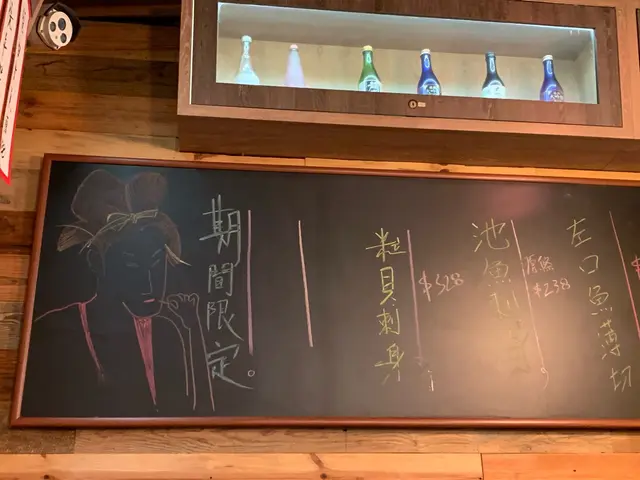 期間限定。
粒貝刺身
$328
池魚刺身
$238
左口魚薄切
$